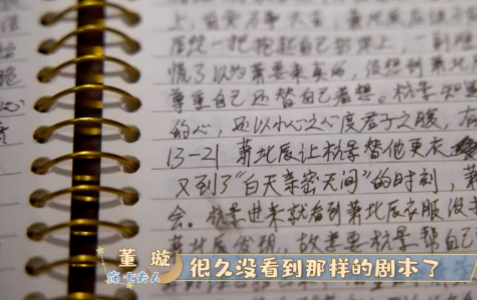 上，
一把抱起自己到床上，一副
慌了以为萧要来真的，没想到萧北辰
尊重自己还替自己着想。杭景知道
的心，还以小人之心度君子之腹，有
13-21 萧北辰让杭景替他更衣
又到了“白天亲密无间”的时刻，萧
会。杭景进来就看到萧北辰衣服没
萧北辰发现，故意要杭景帮自己
董璇
夫人
很久没看到那样的剧本了